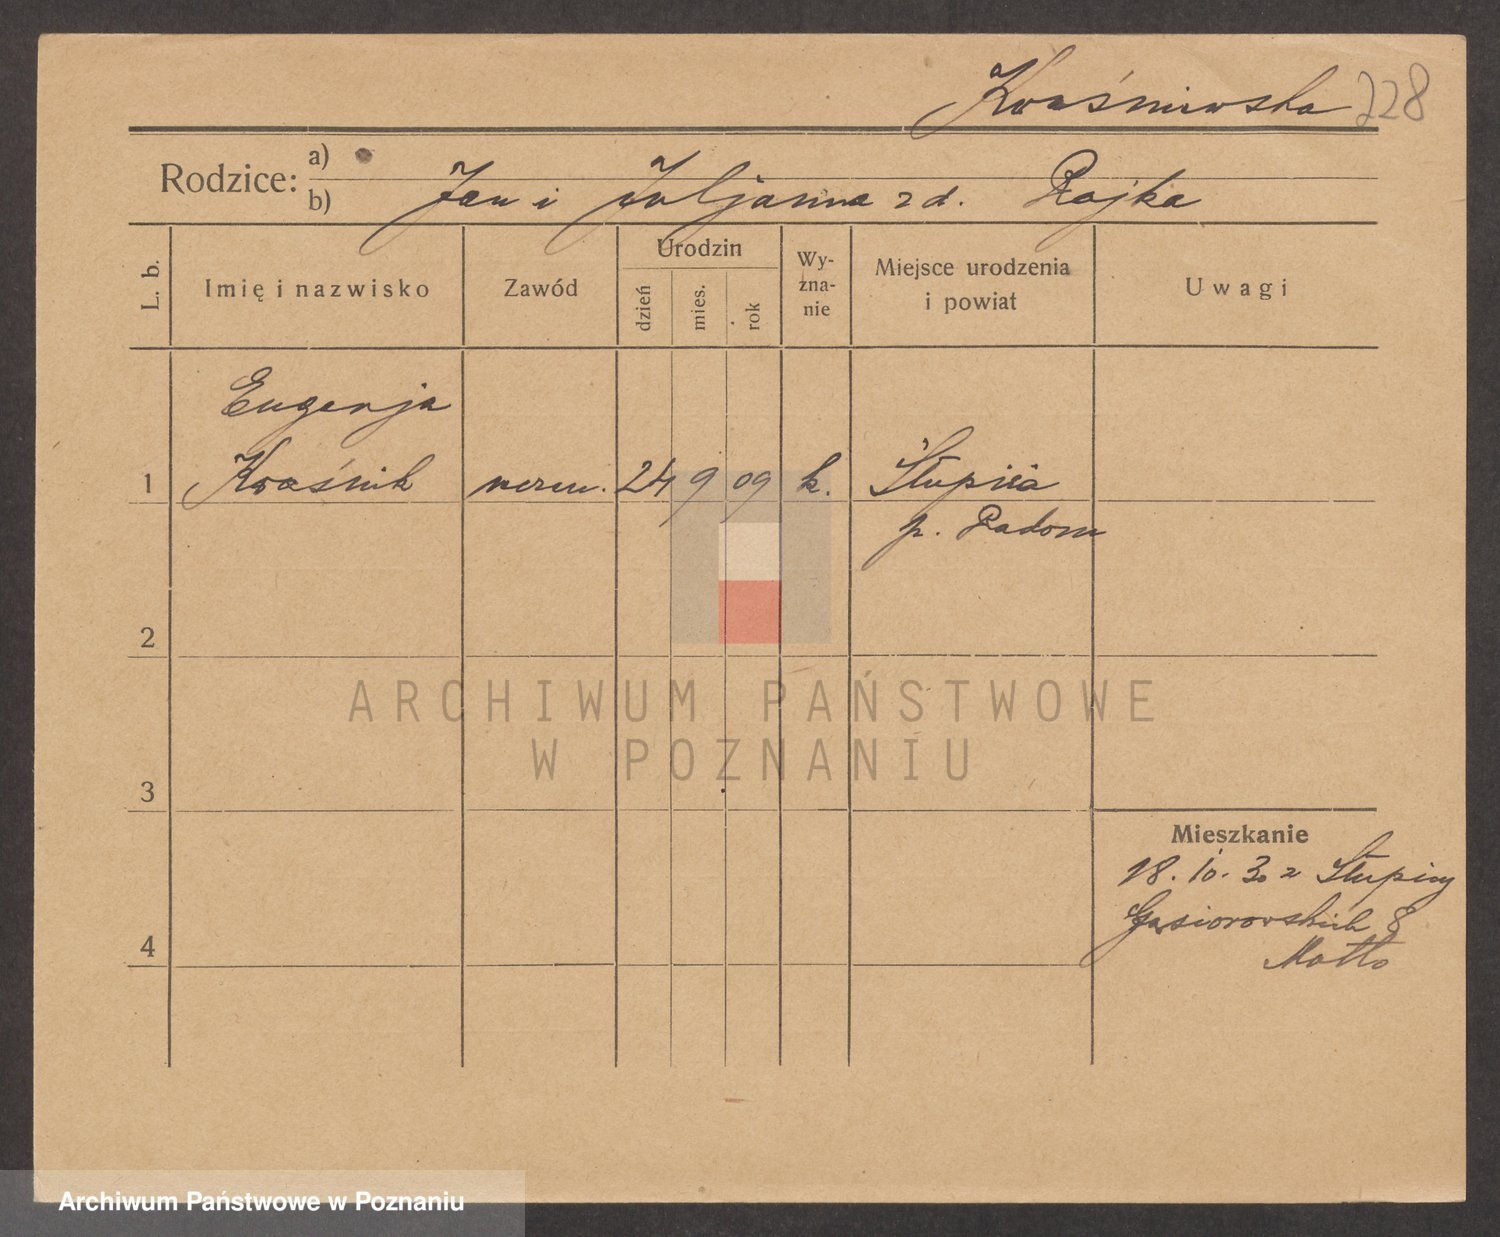 Kwaśniewska 228
Rodzice:
a)
b) Jan i Juljanna z d. Rojka
L. b.
Imię i nazwisko
Zawód
Urodzin
dzień
mies.
rok
Wy-
zna-
nie
Miejsce urodzenia
i powiat
Uwagi
Eugenja
1 Kwaśnik 24 9 09 k. Słupica
p. Radom
2
3
4
Mieszkanie
18. 10. 30 z Słupicy
Gąsiorowskich 8
ARCHIWUM PAŃSTWOWE
W POZNANIU
Archiwum Państwowe w Poznaniu